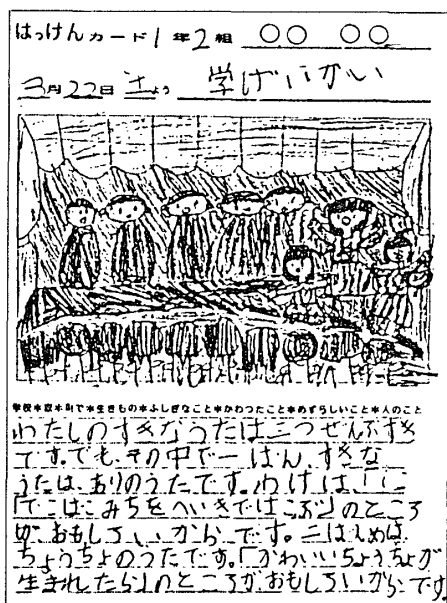 はっけんカード 1年2組 ○○ ○○
3月22日 土よう 学げいかい
学校*家*町で*生きもの*ふしぎなこと*かわったこと*めずらしいこと*人のこと
わたしのすきなうたは三つぜんぶすき
です。でも、その中で一ばん、すきな
うたは、ありのうたです。わけは、「
「でこぼこみちをへいきではこぶ」のところ
が、おもしろいからです。二ばんめは、
ちょうちょのうたです。「かわいいちょうちょが
生まれたら」のところがおもしろいからです